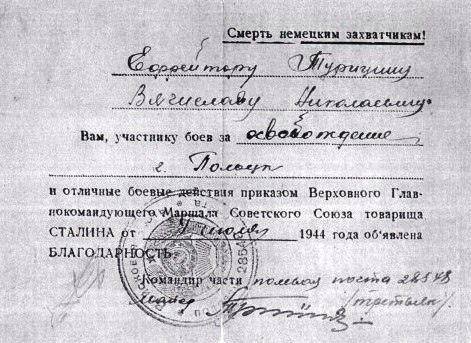 Смерть немецким захватчикам!
Ефрейтору Турицину
Вячеславу Николаевичу
Вам, участнику боев за освобождение
г. Полоцк
и отличные боевые действия приказом Верховного Глав-
нокомандующего Маршала Советского Союза товарища
СТАЛИНА от 4 июля 1944 года об'явлена
БЛАГОДАРНОСТЬ
Командир части полевая почта 28543
майор (Третьяк)